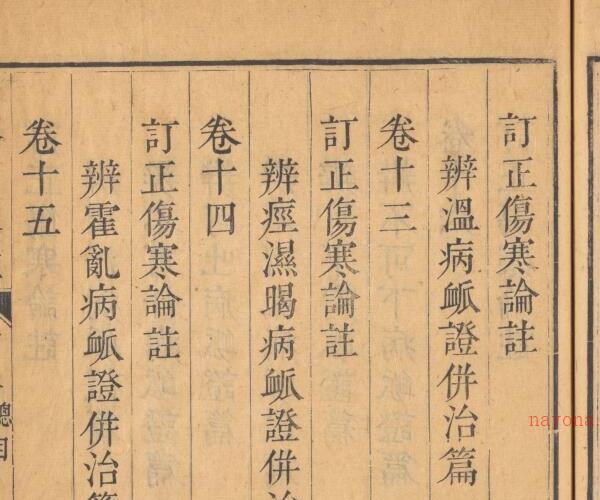 訂正傷寒論註
辨溫病衇證併治篇
卷十三
訂正傷寒論註
辨痙濕暍病衇證併治
卷十四
訂正傷寒論註
辨霍亂病衇證併治篇
卷十五
總目
nayona